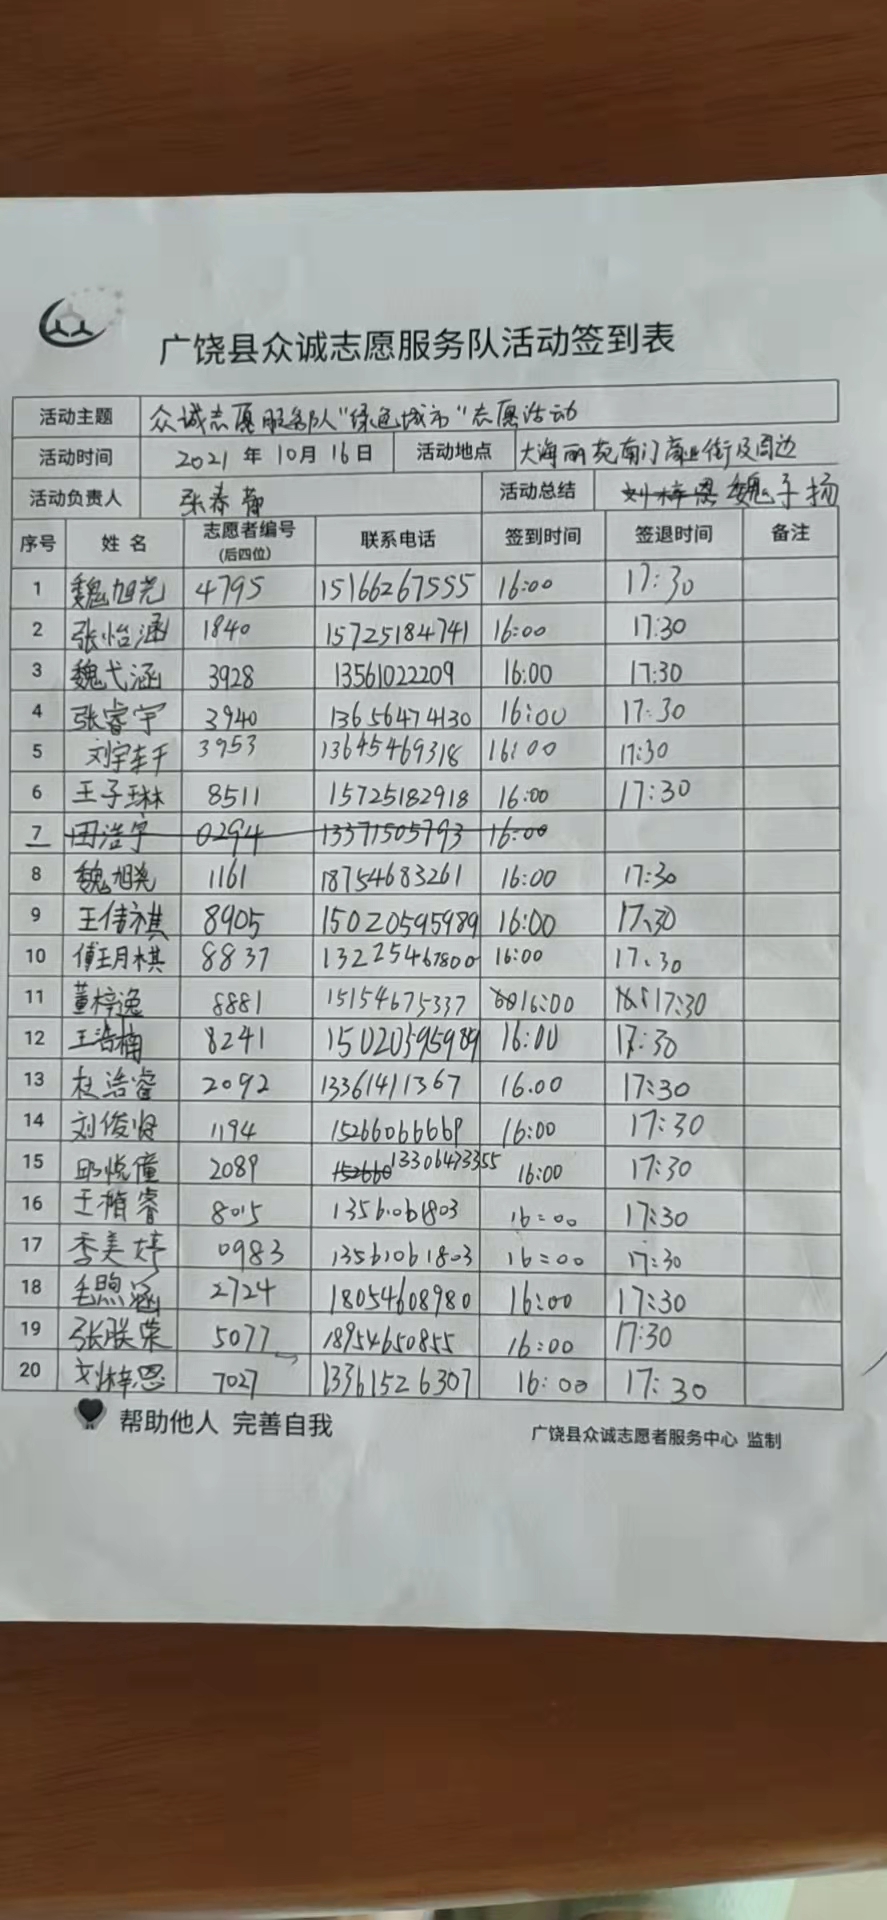 广饶县众诚志愿服务队活动签到表
活动主题 众诚志愿服务队"绿色城市"志愿活动
活动时间 2021 年 10 月 16 日 活动地点 大海丽苑南门商业街及周边
活动负责人 张春静 活动总结 刘梓恩 魏子扬
序号 姓名 志愿者编号 (后四位) 联系电话 签到时间 签退时间 备注
1 魏旭光 4795 15166267555 16:00 17:30
2 张怡涵 1840 15725184741 16:00 17:30
3 魏弋涵 3928 13561022209 16:00 17:30
4 张睿宇 3940 13656474130 16:00 17:30
5 刘宇轩 3953 13645469318 16:00 17:30
6 王子琳 8511 15725182918 16:00 17:30
7 田浩宇 0294 13371505793 16:00
8 魏旭尧 1161 18754683261 16:00 17:30
9 王倩祺 8905 15020595989 16:00 17:30
10 傅玥棋 8837 13225467800 16:00 17:30
11 董梓逸 8881 15154675337 16:00 17:30
12 王浩楠 8241 15020595989 16:00 17:30
13 权浩睿 2092 13361411367 16.00 17:30
14 刘俊贤 1194 15266066669 16:00 17:30
15 邱悦僮 2089 152660 13306473355 16:00 17:30
16 王禛睿 8015 13561061803 16=00 17:30
17 季美婷 0983 13561061803 16=00 17:30
18 毛煦涵 2724 18054608980 16:00 17:30
19 张朕荣 5077 18954650855 16:00 17:30
20 刘梓恩 7027 13361526307 16:00 17:30
帮助他人 完善自我
广饶县众诚志愿者服务中心 监制